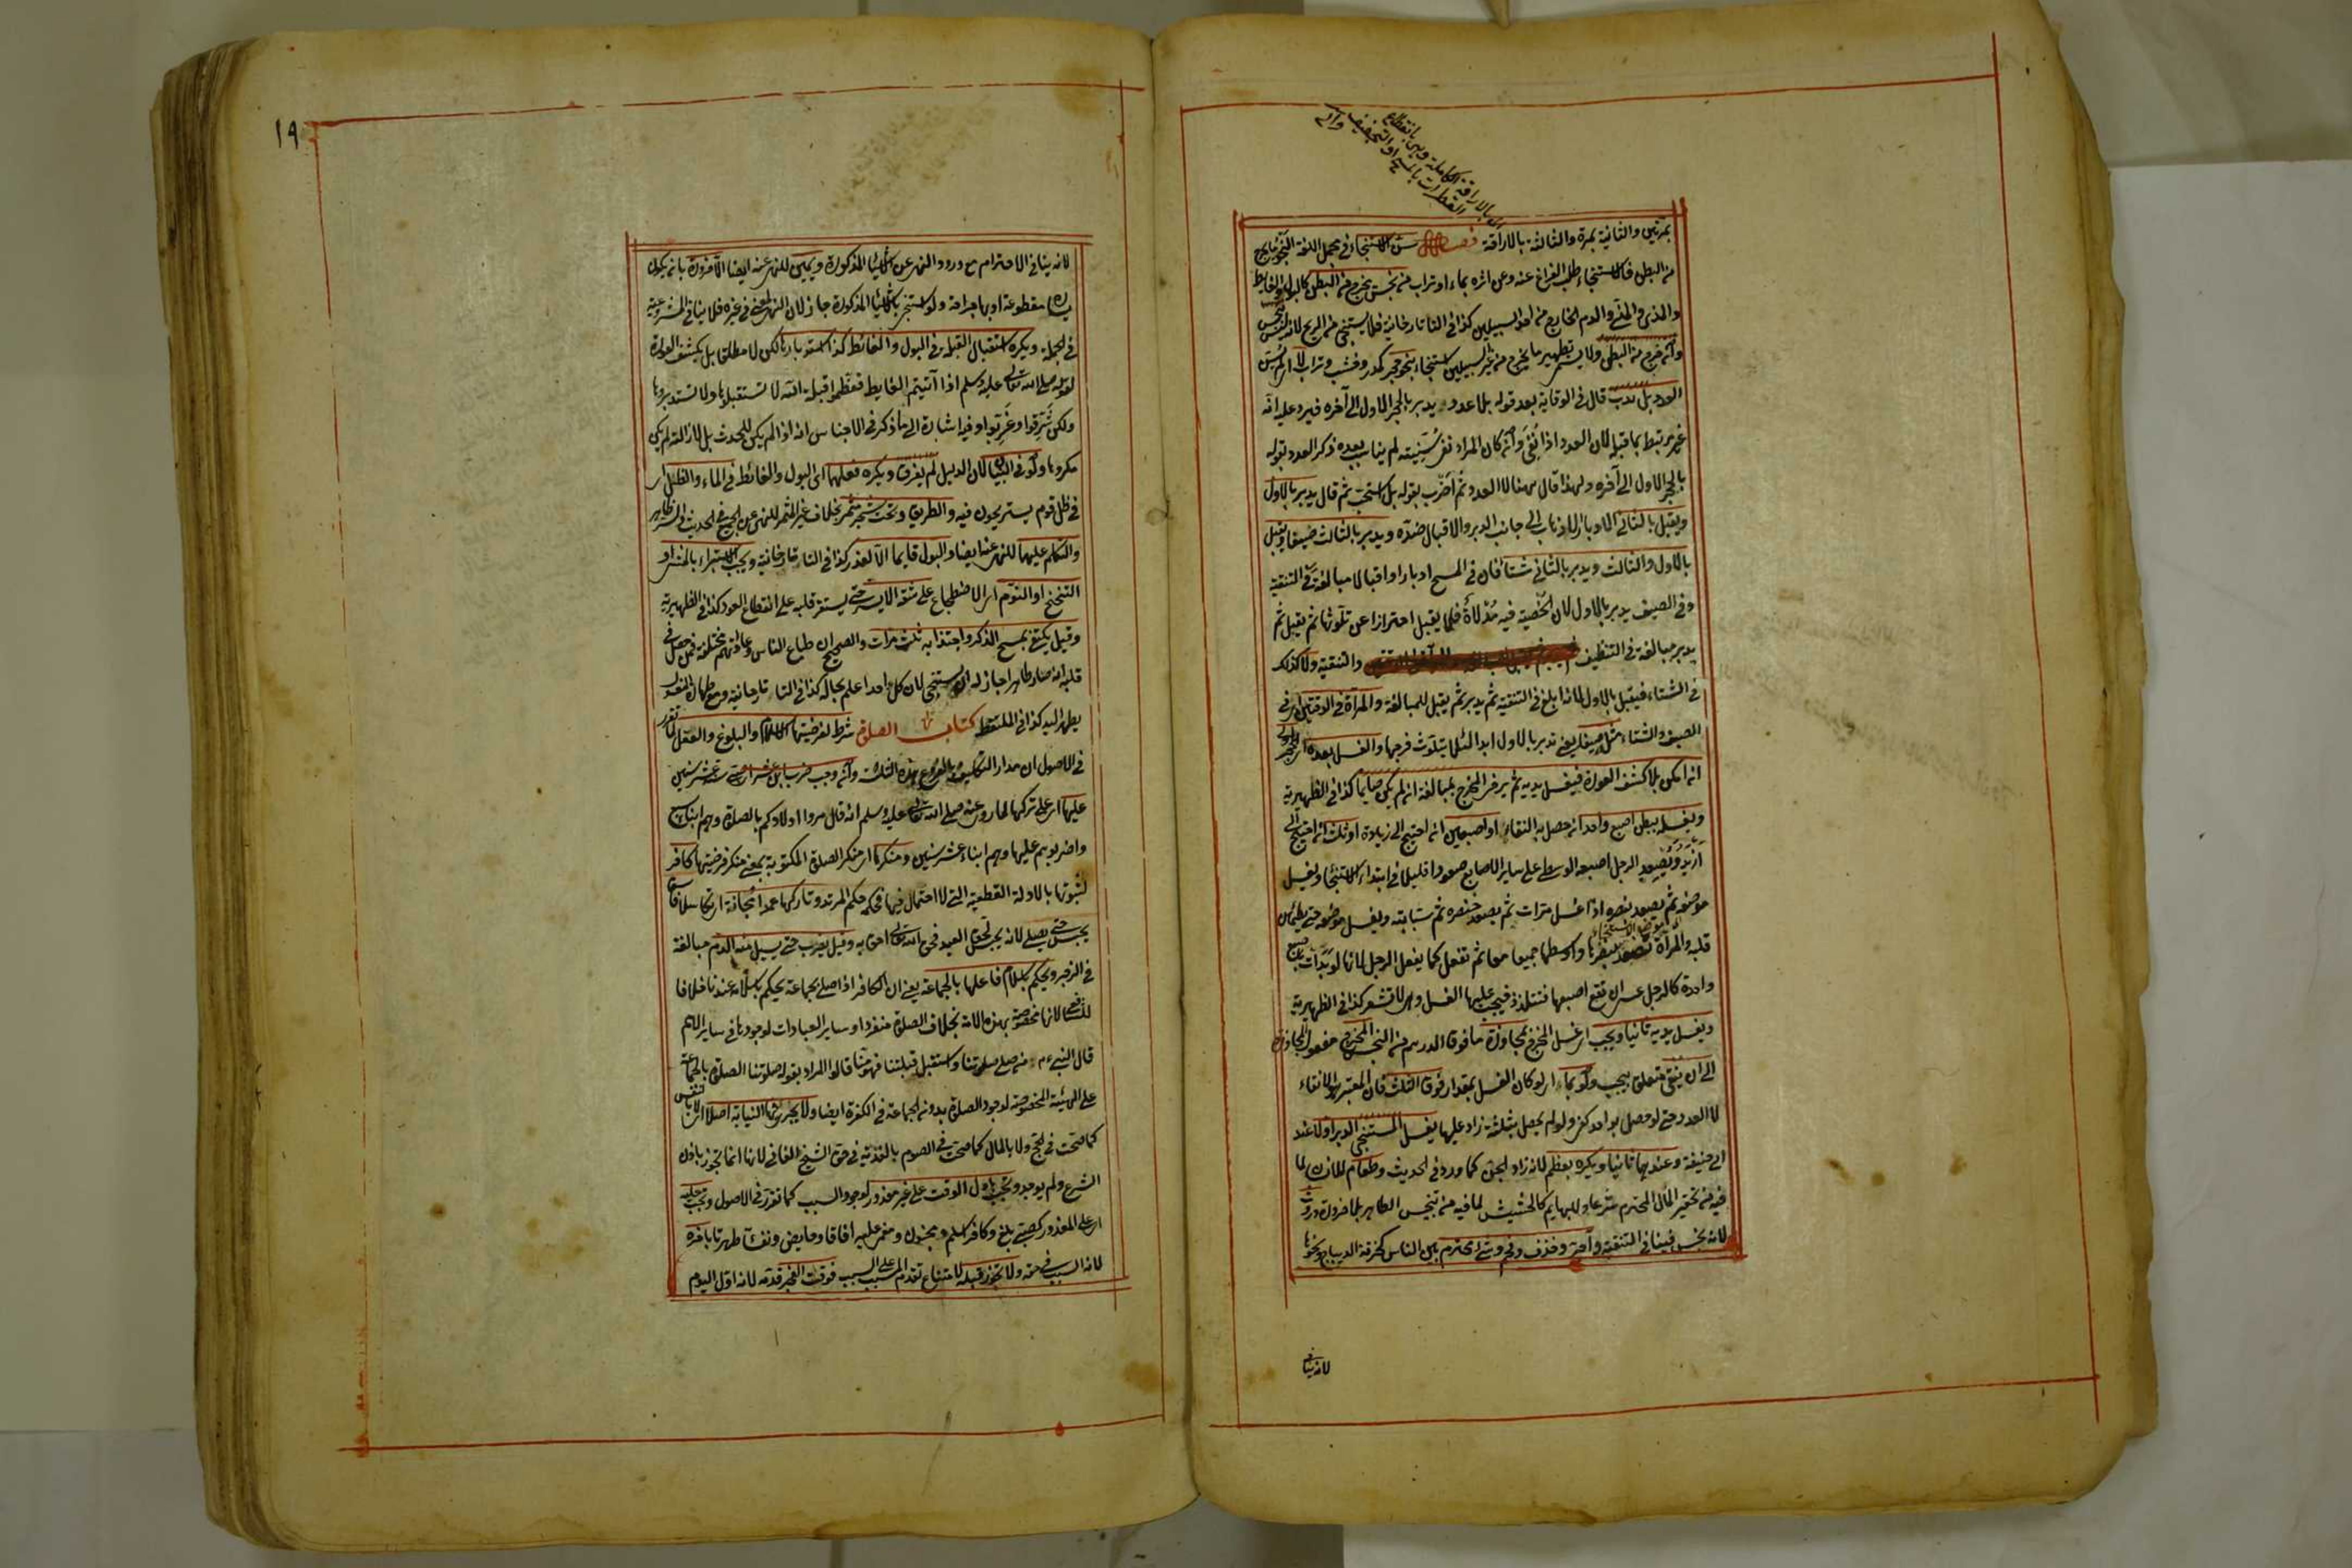 بمرتين والثانية بمرة والثالثة بالاراقة فصل سن الاستنجاء في مجمل اللغة النجو ما يخرج
من البطن فالاستنجاء طلب الفراغ عنه وعن اثره بماء او تراب من نجس يخرج من البطن كالبول والغايط
والمذي والمني والدم الخارج من احد السبيلين كذا في التاتارخانية فلا يستنجى من الريح لانه ليس بنجس
وان خرج من البطن ولا يسمى تطهير ما يخرج من غير السبيلين استنجاء بنحو حجر كمدر وخشب وتراب لا
العدد بل ندب قال في الوقاية بعد قوله بلا عدد يدبر بالحجر الاول الى آخره فيرد عليه انه
غير مرتبط بما قبله لان العدد اذا نفي وان كان المراد نفي سنيته لم يناسب بعده ذكر العدد بقوله
بالحجر الاول الى آخره ولهذا قال ههنا لا العدد ثم اضرب بقوله بل استحب ثم قال يدبر بالاول
ويقبل بالثاني الادبار الاذهاب الى جانب الدبر والاقبال ضده ويدبر بالثالث صيفا ويقبل
بالاول والثالث ويدبر بالثاني شتاء فان في المسح ادبارا واقبالا مبالغة في التنقية
وفي الصيف يدبر بالاول لان الخصية فيه مدلاة فلا يقبل احترازا عن تلوثها ثم يقبل ثم
يدبر مبالغة في التنظيف والتنقية ولا كذلك
في الشتاء فيقبل بالاول لانه ابلغ في التنقية ثم يدبر ثم يقبل للمبالغة والمرأة في الوقتين اي في
الصيف والشتاء مثله صيفا يعني تدبر بالاول ابدا لئلا يتلوث فرجها والغسل بعده
ان امكن بلا كشف العورة فيغسل يديه ثم يرخي المخرج بمبالغة ان لم يكن صايما كذا في الظهيرية
ويغسله ببطن اصبع واحد ان حصل به النقاء او اصبعين ان احتيج الى زيادة او ثلث ان احتيج الى
ازيد ويصعد الرجل اصبعه الوسطى على ساير الاصابع صعودا قليلا في ابتداء الاستنجاء ويغسل
موضعه ثم يصعد بنصره اذا غسل مرات ثم يصعد خنصره ثم سبابته ويغسل موضعه حتى يطمئن
قلبه والمرأة تصعد بنصرها واوسطها جميعا معا ثم تفعل كما يفعل الرجل لانها لو بدأت باصبع
واحدة كالرجل عسى ان تقع اصبعها فتتلذذ فيجب عليها الغسل وهي لا تشعر كذا في الظهيرية
ويغسل يديه ثانيا ويجب اي غسل المخرج في مجاوزة ما فوق الدرهم من النجس المخرج مفعول المجاوزة
الى ان ينقى متعلق بيجب ولو بماء اي لو كان الغسل بمقدار فوق الثلث فان المعتبر هو الانقاء
لا العدد حتى لو حصل بواحد كفى ولو لم يحصل بثلثة زاد عليها يغسل المستنجي الدبر اولا عند
ابي حنيفة وعندهما ثانيا ويكره بعظم لانه زاد الجن كما ورد في الحديث وطعام للانسان لما
فيه من تحقير المال المحترم شرعا وللبهايم كالحشيش لما فيه من تنجيس الطاهر بلا ضرورة وروث
لانه نجس فينافي التنقية وآجر وخزف وفحم وشيء محترم بين الناس كخرقة الديباج ونحوها
لانه ينافي
١٩
لانه ينافي الاحترام مع ورود النهي عن الاشياء المذكورة ويمين للنهي عنه ايضا الا ضرورة بان يكون
يساره مقطوعة او بها جراحة ولو استنجى بالاشياء المذكورة جاز لان النهي لمعنى في غيره فلا ينافي المشروعية
في الجملة ويكره استقبال القبلة في البول والغائط كذا استدبارها لكن لا مطلقا بل بكشف العورة
لقوله صلى الله تعالى عليه وسلم اذا اتيتم الغايط فعظموا قبلة الله لا تستقبلوها ولا تستدبروها
ولكن شرقوا او غربوا وفيه اشارة الى ما ذكر في الاجناس انه اذا لم يكن للحدث بل لازالته لم يكن
مكروها ولو في البنيان لان الدليل لم يفرق ويكره فعلهما اي البول والغائط في الماء والظل اي
في ظل قوم يستريحون فيه والطريق وتحت شجر مثمر بخلاف غير المثمر للنهي عن الجميع في الحديث
والتكلم عليهما للنهي عنه ايضا والبول قايما الا لعذر كذا في التاتارخانية ويجب الاستبراء بالمشي او
التنحنح او النوم اي الاضطجاع على شقه الايسر حتى يستقر قلبه على انقطاع العود كذا في الظهيرية
وقيل يكتفي بمسح الذكر واجتذابه ثلث مرات والصحيح ان طباع الناس وعاداتهم مختلفة فمن حصل في
قلبه انه صار طاهرا جاز له ان يستنجي لان كل احد اعلم بحاله كذا في التاتارخانية ومع طهارة المغسول
يطهر اليد كذا في الملتقط كتاب الصلوة شرط لفرضيتها الاسلام والبلوغ والعقل لما تقرر
في الاصول ان مدار التكليف بالفروع هذه الثلث وان وجب ضرب ابن عشر اي صبي سنه عشر سنين
عليها اي على تركها لما روي عنه صلى الله تعالى عليه وسلم انه قال مروا اولادكم بالصلوة وهم ابناء سبع
واضربوهم عليها وهم ابناء عشر سنين ومنكرها اي منكر الصلوة المكتوبة بمعنى منكر فرضيتها كافر
لثبوتها بالادلة القطعية التي لا احتمال فيها فحكمه حكم المرتد وتاركها عمدا مجانة اي تكاسلا فاسق
يحبس حتى يصلي لانه يحبس لحق العبد فحق الله تعالى احق به وقيل يضرب حتى يسيل منه الدم مبالغة
في الزجر ويحكم باسلام فاعلها بالجماعة يعني ان الكافر اذا صلى بجماعة يحكم باسلامه عندنا خلافا
للشافعي لانها مخصوصة بهذه الامة بخلاف الصلوة منفردا وساير العبادات لوجودها في ساير الامم
قال النبي ء م من صلى صلوتنا واستقبل قبلتنا فهو منا قالوا المراد بقوله صلوتنا الصلوة بالجماعة
على الهيئة المخصوصة لوجود الصلوة بدون الجماعة في الكفرة ايضا ولا يجري فيها النيابة اصلا اي لا بالنفس
كما صحت في الحج ولا بالمال كما صحت في الصوم بالفدية في حق الشيخ الفاني لانها انما تجوز باذن
الشرع ولم يوجد وتجب باول الوقت على غير معذور لوجود السبب كما تقرر في الاصول وتجب عليه
اي على المعذور كصبي بلغ وكافر اسلم ومجنون ومغمى عليه افاقا وحايض ونفساء طهرتا بآخره
لانه السبب في حقه ولا تجوز قبله لامتناع تقدم المسبب على السبب فوقت الفجر قدمه لانه اول اليوم